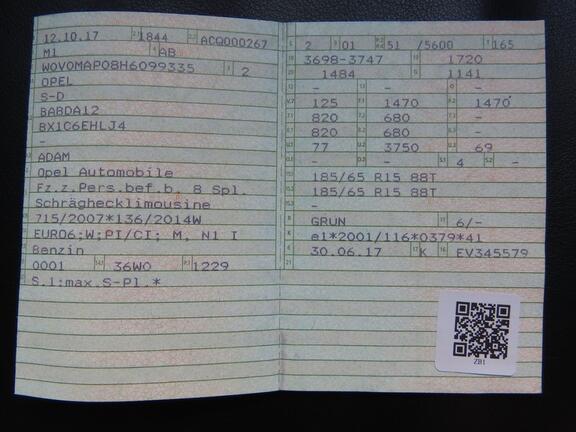 12.10.17 1844 ACQ000267
M1 AB
W0V0MAP08H6099335 2
OPEL
S-D
BABDA12
BX1C6EHLJ4
-
ADAM
Opel Automobile
Fz.z.Pers.bef.b. 8 Spl.
Schräghecklimousine
715/2007*136/2014W
EURO6;W;PI/CI; M, N1 I
Benzin
0001 36W0 1229
S.1:max.S-Pl.*
2 01 51 /5600 165
3698-3747 1720
1484 1141
- - -
125 1470 1470
820 680 -
820 680 -
77 3750 69
- - 4 -
185/65 R15 88T
185/65 R15 88T
-
GRUN 6/-
e1*2001/116*0379*41
30.06.17 K EV345579
ZB1